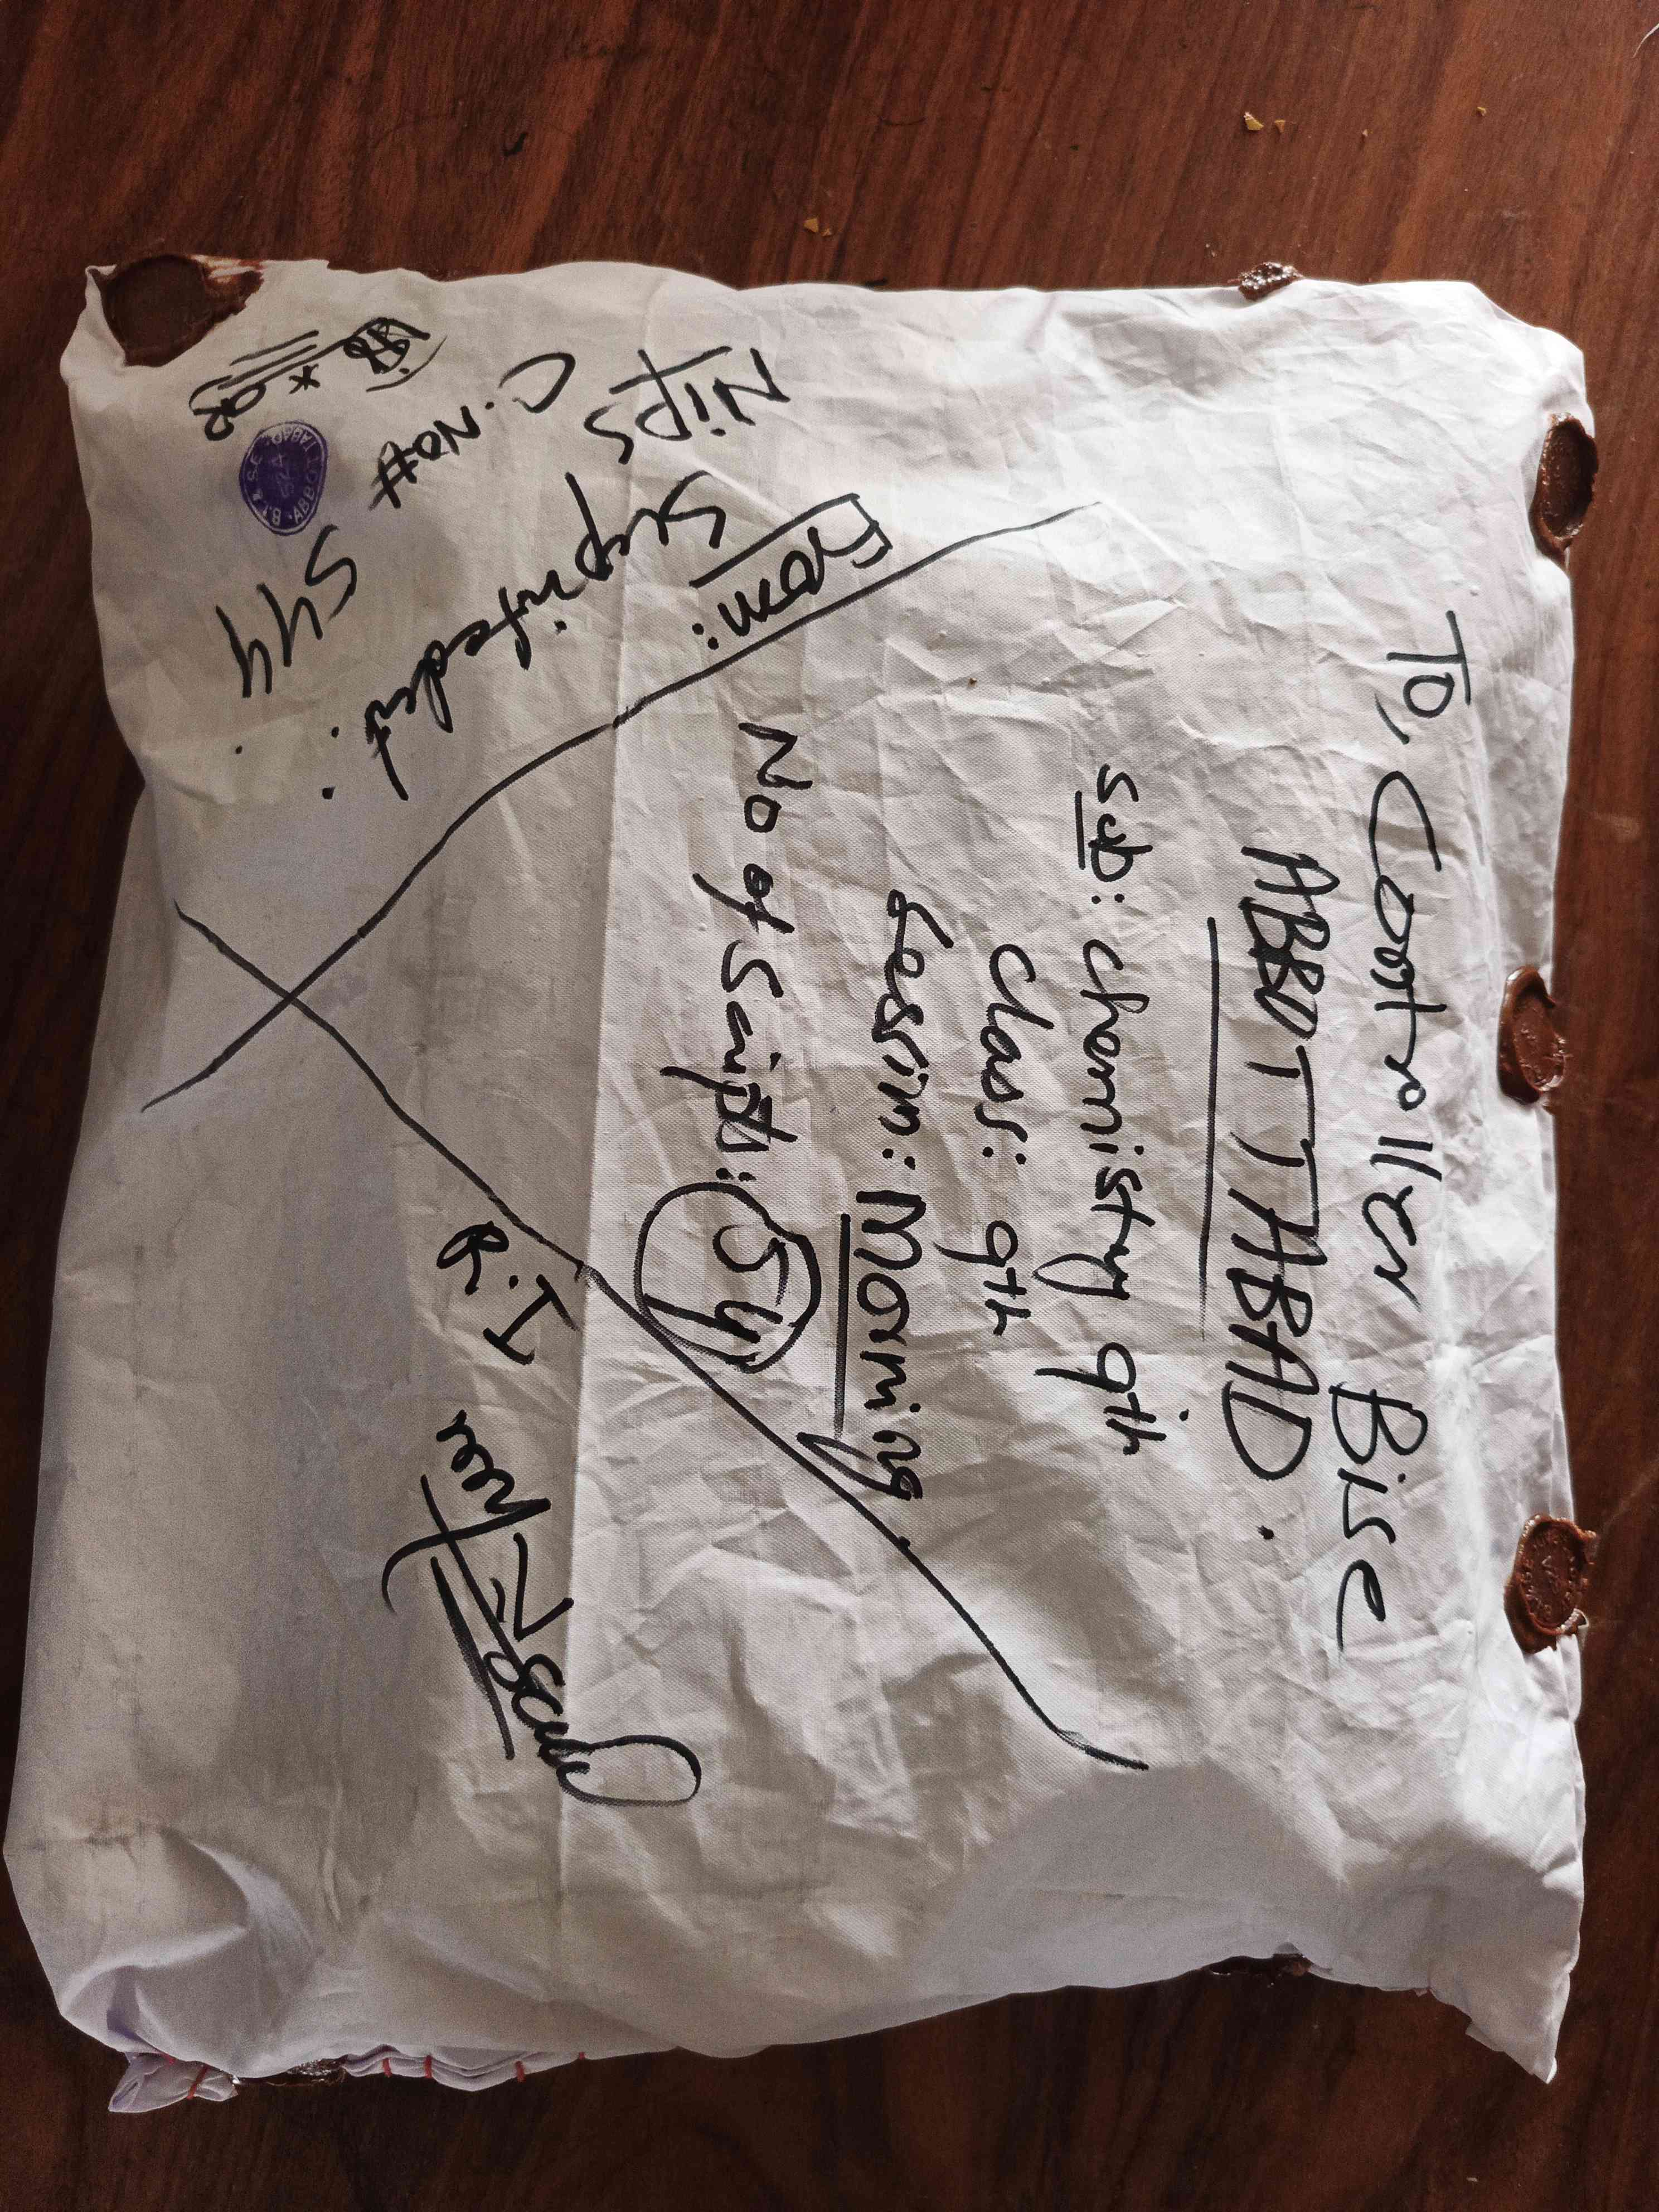 To, Controller Bise
ABBOTTABAD.
Sub: Chemistry 9th
Class: 9th
Session: Morning
No of Scripts: 54
From:
Suprintedent
Nips
C. No#
544
R.I